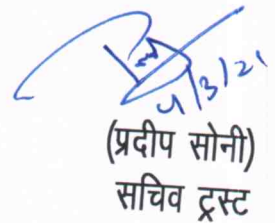 4/3/21
(प्रदीप सोनी)
सचिव ट्रस्ट